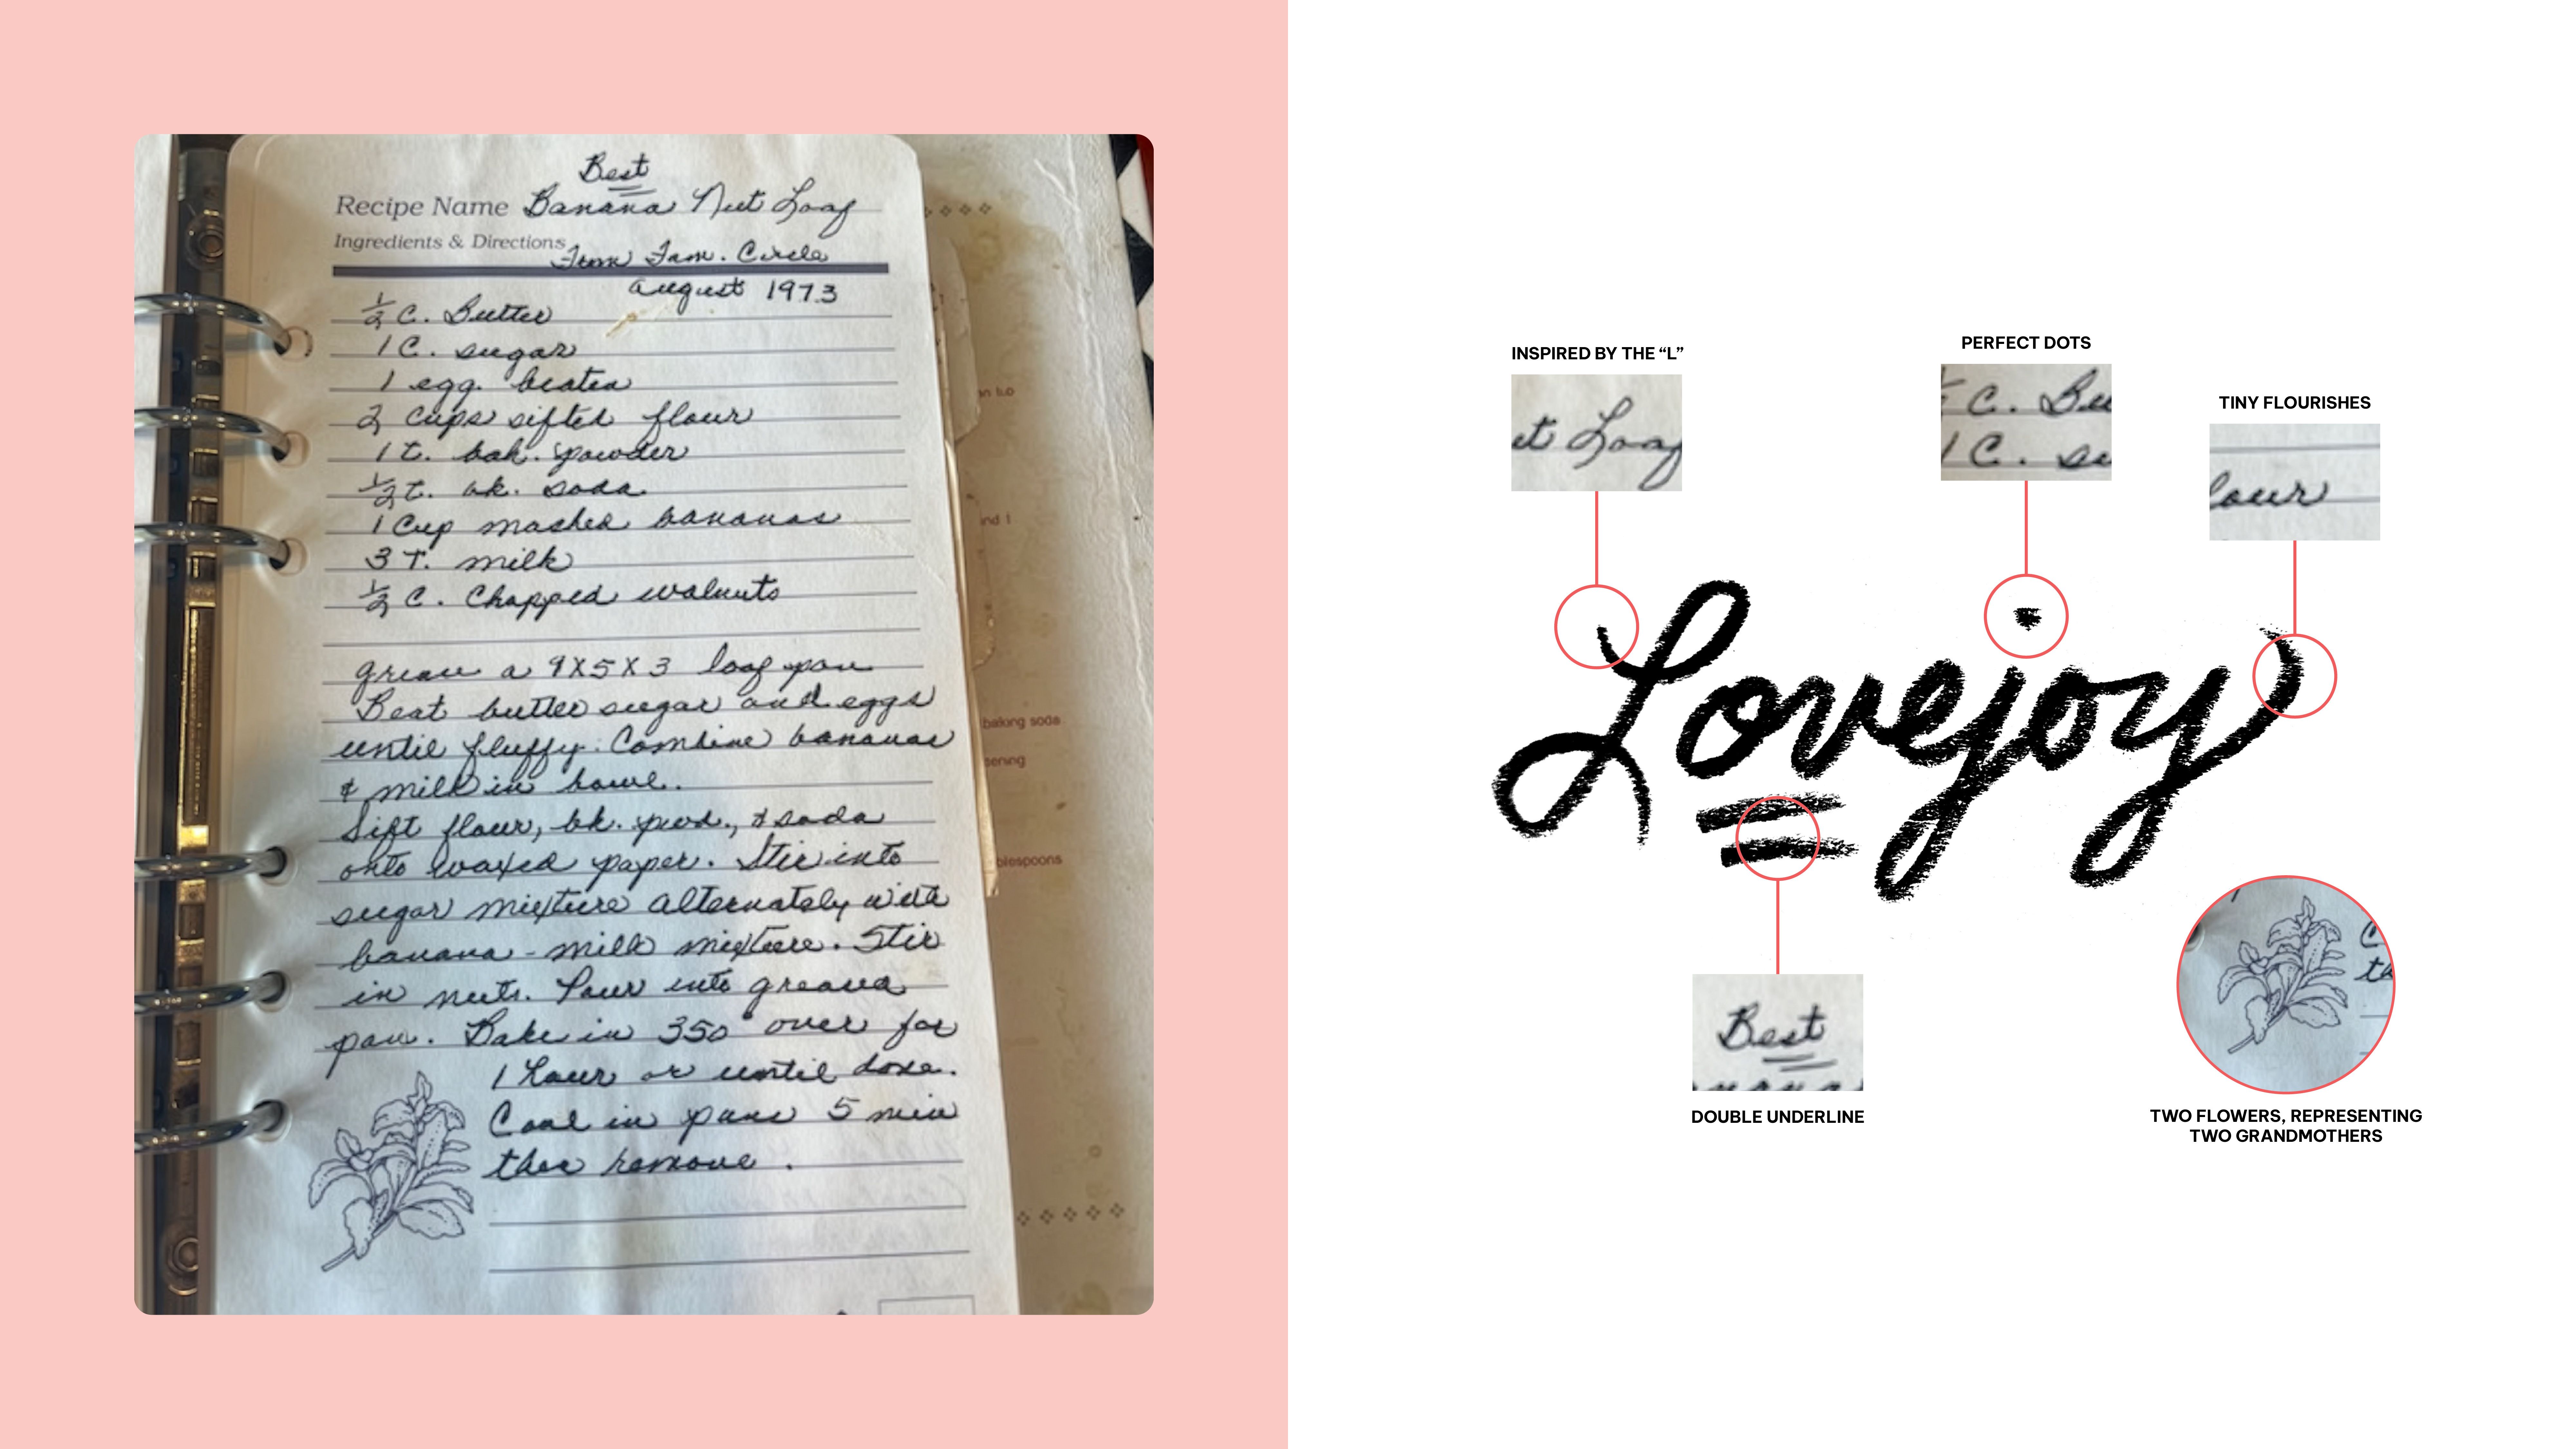 Best
Recipe Name Banana Nut Loaf
Ingredients & Directions
From Fam. Circle
August 1973
1/2 C. Butter
1 C. sugar
1 egg beaten
2 cups sifted flour
1 t. bak. powder
1/2 t. bk. soda
1 Cup mashed bananas
3 T. milk
1/2 C. Chopped walnuts
grease a 9X5X3 loaf pan
Beat butter sugar and eggs
until fluffy. Combine bananas
& milk in bowl.
Sift flour, bk. pwd., & soda
onto waxed paper. Stir into
sugar mixture alternately with
banana - milk mixture. Stir
in nuts. Pour into greased
pan. Bake in 350° oven for
1 hour or until done.
Cool in pans 5 min
then remove.
baking soda
blespoons
INSPIRED BY THE “L”
ut Loaf
PERFECT DOTS
C. Bu
1 C. su
TINY FLOURISHES
lour
Lovejoy
Best
DOUBLE UNDERLINE
TWO FLOWERS, REPRESENTING
TWO GRANDMOTHERS